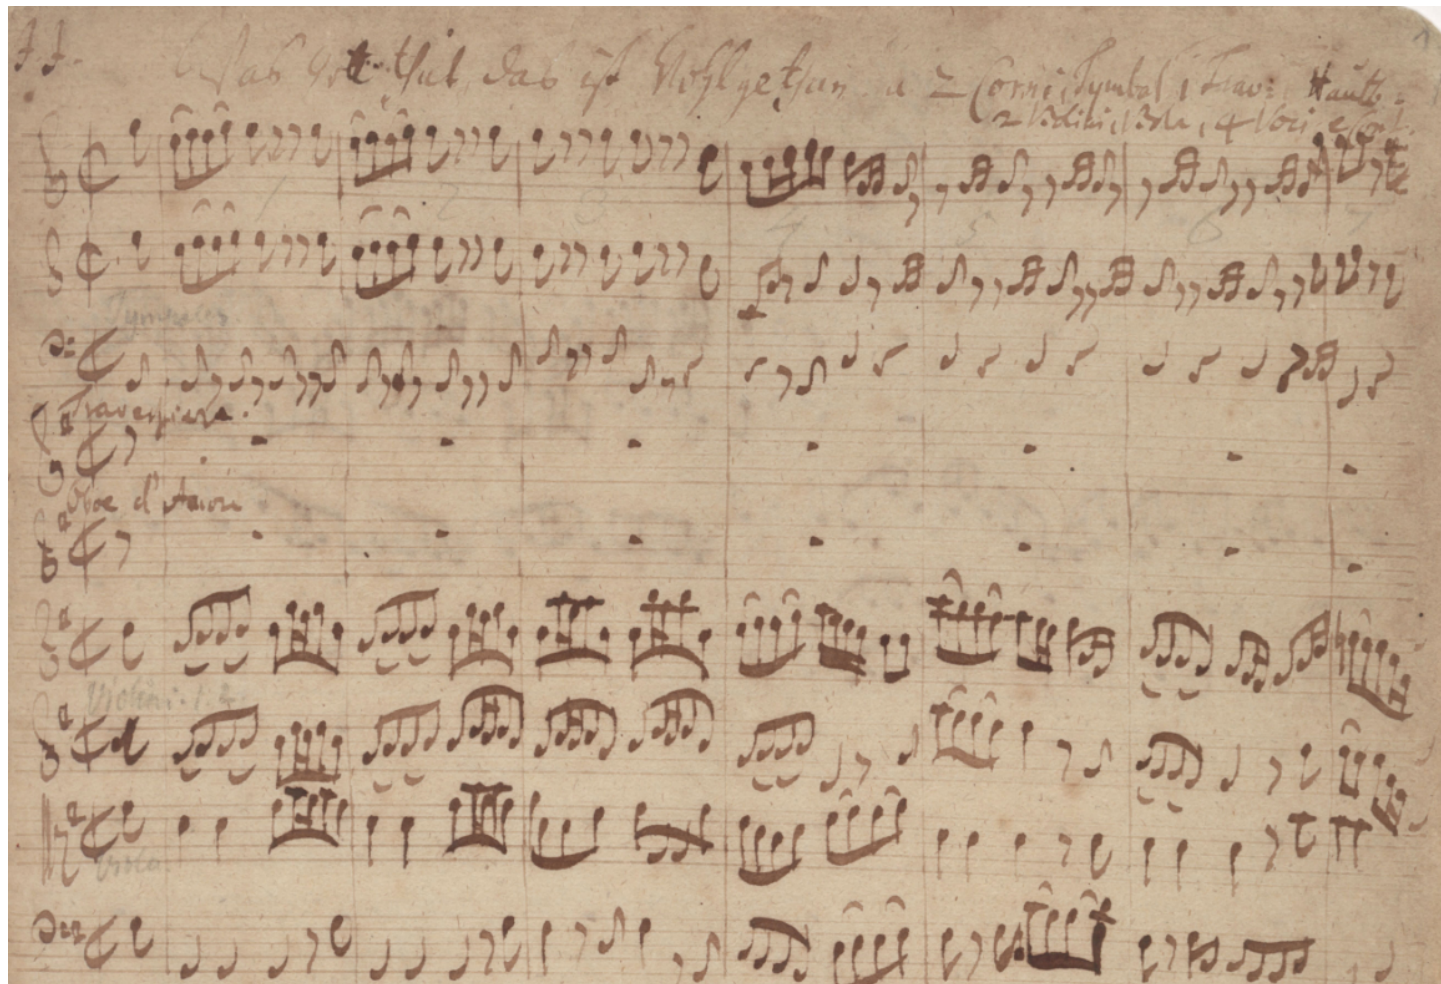 J. J. Was Gott thut, das ist Wohlgethan. a 2 Corni, Tymbal, 1 Trav: Hautb:
2 Violini, 1 Viola, 4 Voci e Cont.
Tympales.
Traversiere.
Oboe d'Amour
Violini. 1. 2.
Viola.